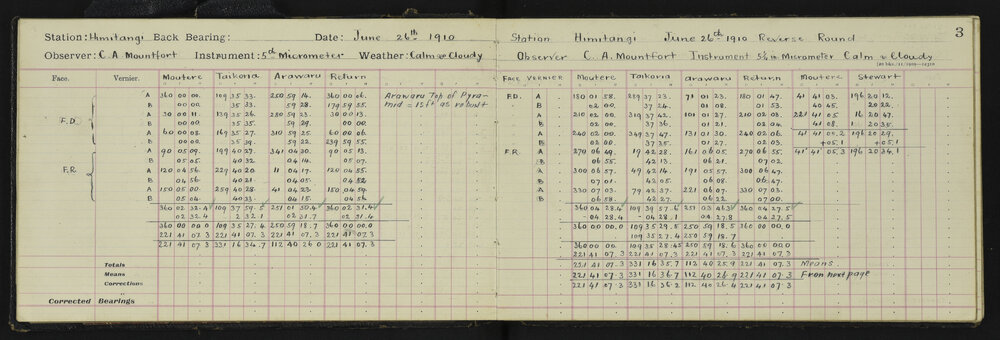 Station: Himitangi Back Bearing: Date: June 26th 1910
Observer: C. A. Mountfort Instrument: 5in Micrometer Weather: Calm & Cloudy
Face. Vernier. Moutere Taikoria Arawaru Return
F.D. A 360 00 00. 109 35 33. 250 59 14. 360 00 06. Arawaru Top of Pyra-
B 00 00. 35 33. 59 28. 179 59 55. mid = 15ft as rebuilt
A 30 00 11. 139 35 26. 280 59 23. 30 00 13.
B 00 00. 35 35. 59 29. 00 00.
A 60 00 08. 169 35 27. 310 59 25. 60 00 06.
B 00 00. 35 29. 59 22. 239 59 55.
F.R. A 90 05 09. 199 40 27. 341 04 20. 90 05 13.
B 05 05. 40 32. 04 14. 05 07.
A 120 04 56. 229 40 20. 11 04 17. 120 04 55.
B 04 56. 40 21. 04 05. 04 52.
A 150 05 00. 259 40 28. 41 04 23. 150 04 59.
B 05 04. 40 33. 04 15. 04 56.
360 02 32.4 109 37 59.5 251 01 50.4 360 02 31.4
02 32.4 2 32.1 02 31.7 02 31.4
360 00 00.0 109 35 27.4 250 59 18.7 360 00 00.0
221 41 07.3 221 41 07.3 221 41 07.3 221 41 07.3
221 41 07.3 331 16 34.7 112 40 26.0 221 41 07.3
Totals
Means
Corrections
Corrected Bearings
3
Station Himitangi June 26th 1910 Reverse Round
Observer C. A. Mountfort Instrument 5in Micrometer Calm & Cloudy
FACE VERNIER Moutere Taikoria Arawaru Return Moutere Stewart
F.D. A 180 01 58. 289 37 23. 71 01 03. 180 01 47. 41 41 03. 196 20 12.
B 02 00. 37 24. 01 08. 01 53. 40 45. 20 22.
A 210 02 00. 319 37 42. 101 01 27. 210 02 03. 221 41 05 16 20 47.
B 02 00. 37 36. 01 21. 02 04. 41 08. 20 35.
A 240 02 00. 349 37 47. 131 01 30. 240 02 06. 41 41 05.2 196 20 29.
B 02 00. 37 35. 01 27. 02 03. +05.1 +05.1
F.R. A 270 06 49. 19 42 28. 161 06 05. 270 06 55. 41 41 05.3 196 20 34.1
B 06 55. 42 13. 06 21. 07 02.
A 300 06 57. 49 42 14. 191 05 57. 300 06 47.
B 07 01. 42 05. 06 08. 06 47.
A 330 07 03. 79 42 37. 221 06 07. 330 07 03.
B 06 58. 42 27. 06 22. 07 00.
360 04 28.4 109 39 57.6 251 03 46.3 360 04 27.5
-04 28.4 -04 28.1 04 27.8 04 27.5
360 00 00.0 109 35 29.5 250 59 18.5 360 00 00.0
109 35 27.4 250 59 18.7
360 00 00. 109 35 28.45 250 59 18.6 360 00 00.0
221 41 07.3 221 41 07.3 221 41 07.3 221 41 07.3
221 41 07.3 331 16 35.7 112 40 25.9 221 41 07.3 Means.
221 41 07.3 331 16 36.7 112 40 26.9 221 41 07.3 From next page
221 41 07.3 331 16 36.2 112 40 26.4 221 41 07.3